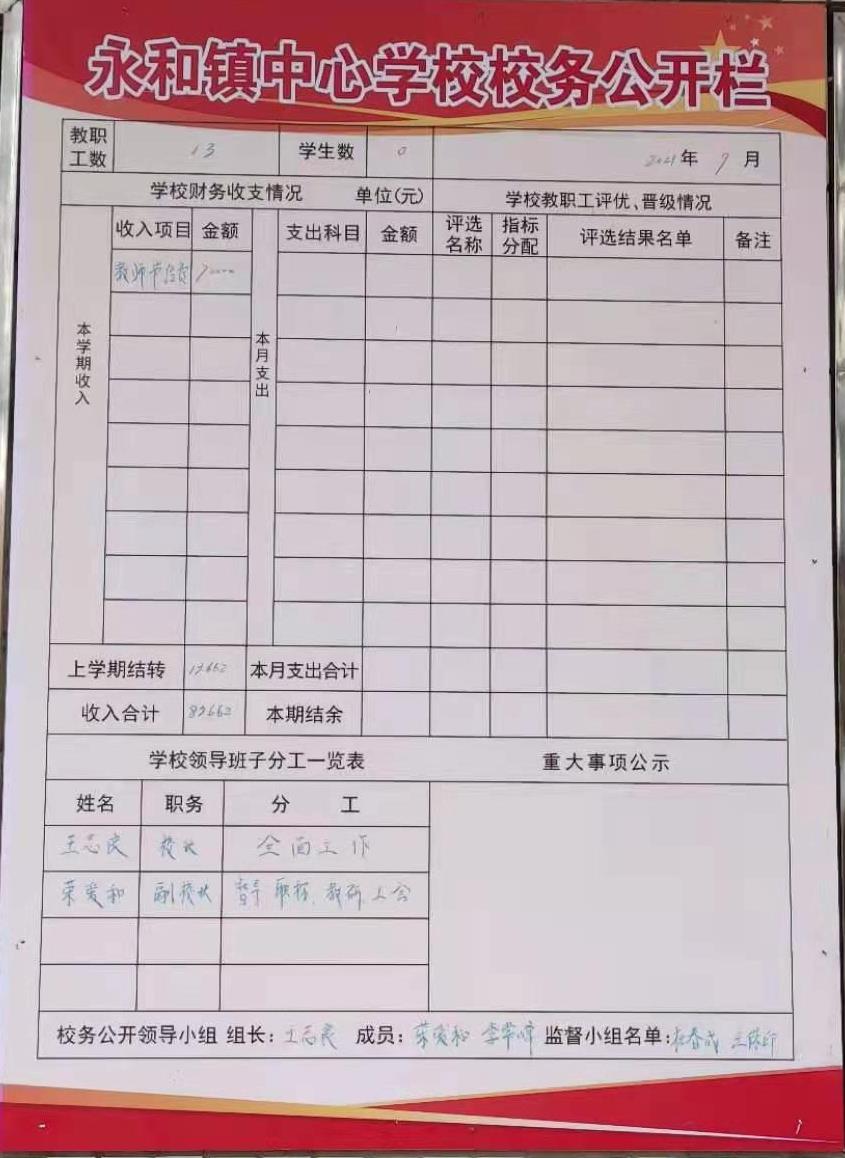 永和镇中心学校校务公开栏
教职工数 13 学生数 0 2021年 9月
学校财务收支情况 单位(元) 学校教职工评优、晋级情况
收入项目 金额 支出科目 金额 评选名称 指标分配 评选结果名单 备注
教师节经费
本学期收入
本月支出
上学期结转 本月支出合计
收入合计 本期结余
学校领导班子分工一览表 重大事项公示
姓名 职务 分 工
王志良 校长 全面工作
荣爱和 副校长 督导 职称、教研 工会
校务公开领导小组 组长: 王志良 成员: 荣爱和 监督小组名单: